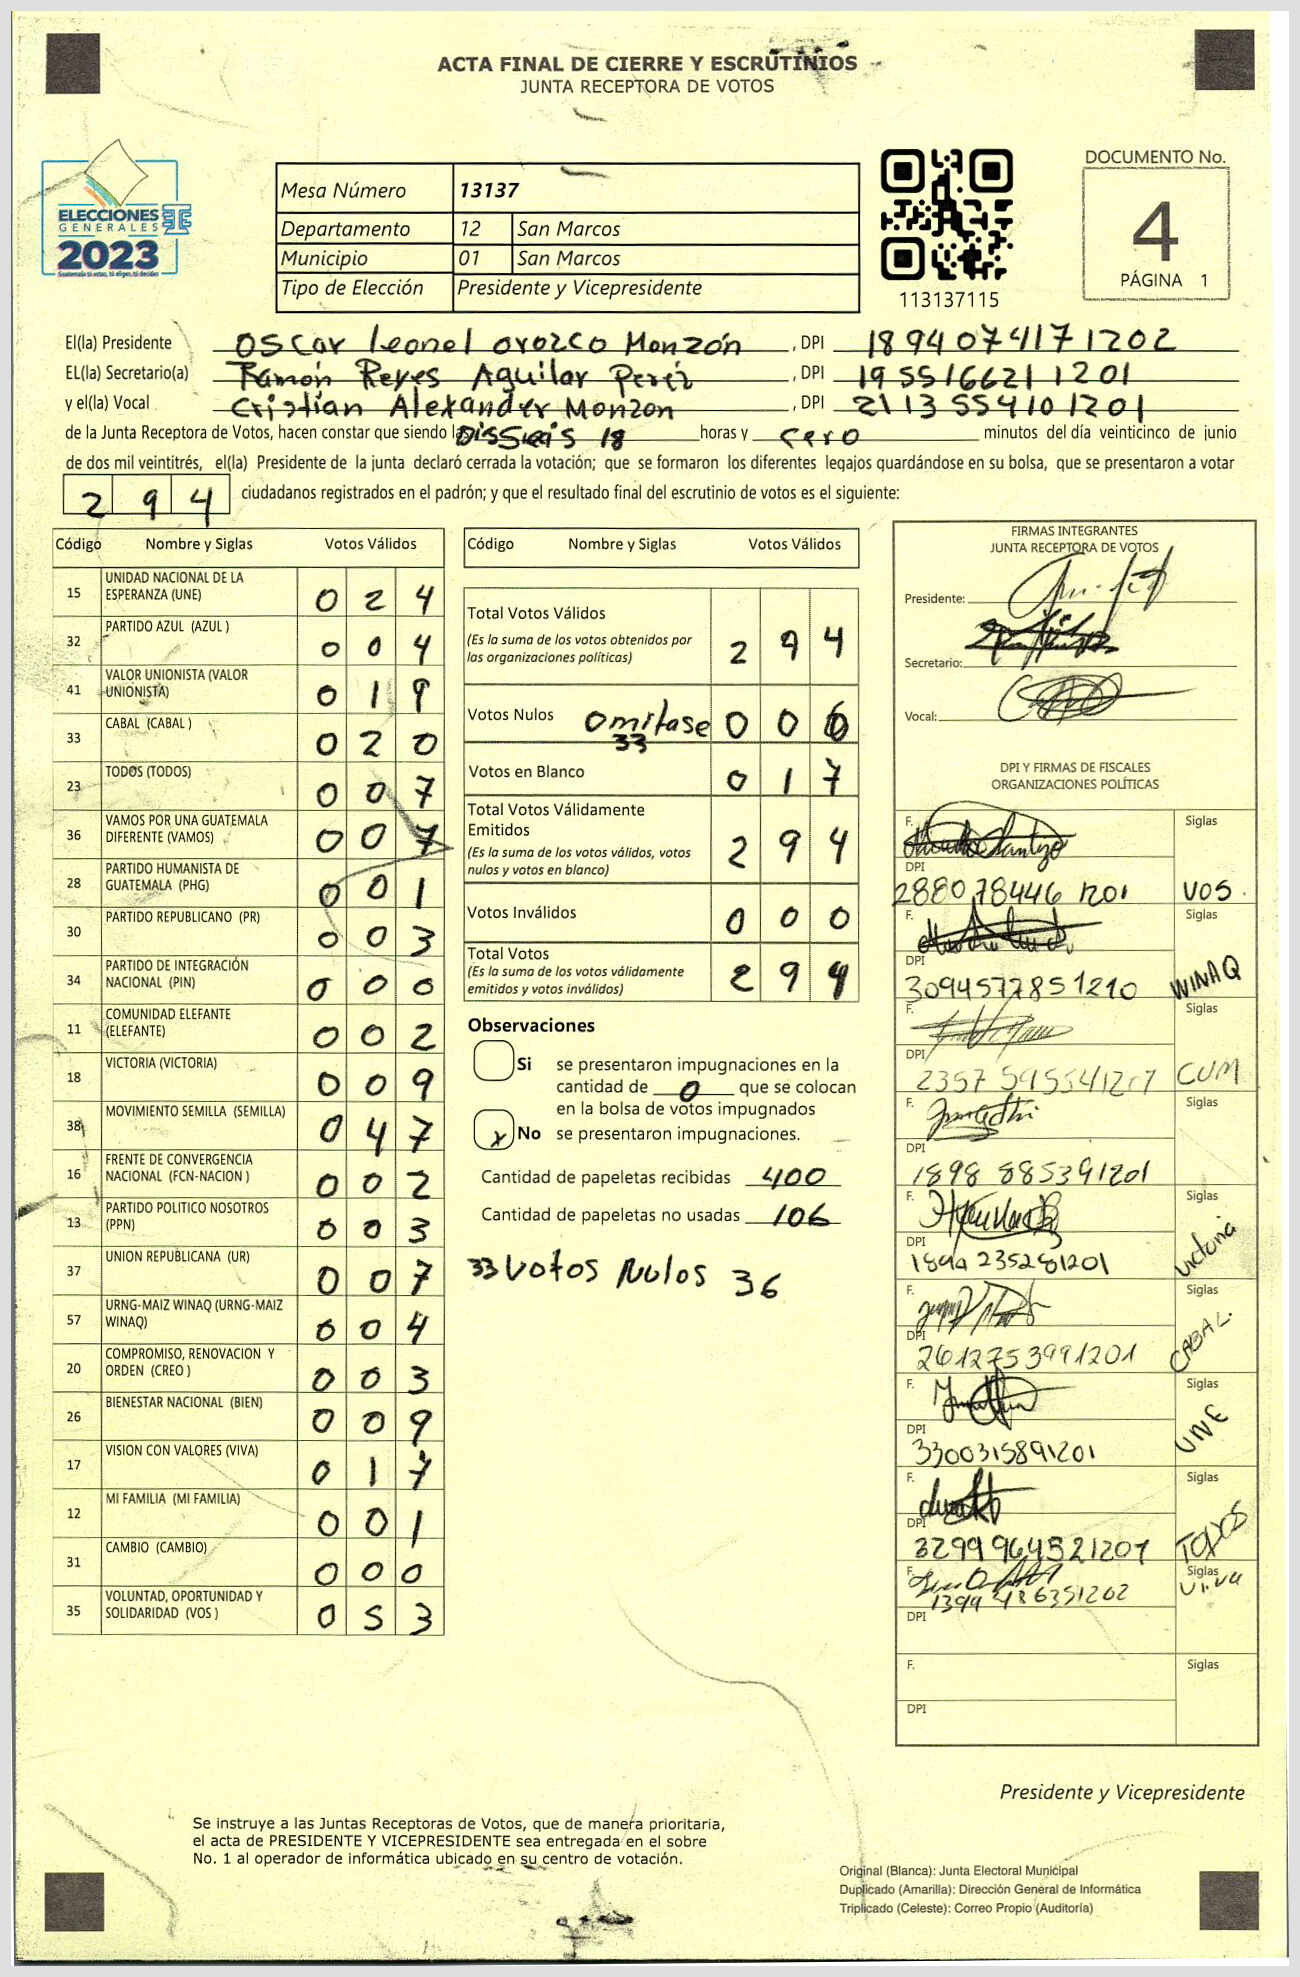 ACTA FINAL DE CIERRE Y ESCRUTINIOS
JUNTA RECEPTORA DE VOTOS
ELECCIONES
GENERALES
2023
Guatemala tú votas, tú eliges, tú decides
Mesa Número 13137
Departamento 12 San Marcos
Municipio 01 San Marcos
Tipo de Elección Presidente y Vicepresidente
113137115
DOCUMENTO No.
4
PÁGINA 1
El(la) Presidente Oscar Leonel Orozco Monzón, DPI 1894074171202
EL(la) Secretario(a) Ramón Reyes Aguilar Perez, DPI 1955166211201
y el(la) Vocal Cristian Alexander Monzon, DPI 2113554101201
de la Junta Receptora de Votos, hacen constar que siendo las 18 horas y cero minutos del día veinticinco de junio
de dos mil veintitrés, el(la) Presidente de la junta declaró cerrada la votación; que se formaron los diferentes legajos guardándose en su bolsa, que se presentaron a votar
294 ciudadanos registrados en el padrón; y que el resultado final del escrutinio de votos es el siguiente:
Código Nombre y Siglas Votos Válidos
15 UNIDAD NACIONAL DE LA ESPERANZA (UNE) 024
32 PARTIDO AZUL (AZUL ) 004
41 VALOR UNIONISTA (VALOR UNIONISTA) 019
33 CABAL (CABAL ) 020
23 TODOS (TODOS) 007
36 VAMOS POR UNA GUATEMALA DIFERENTE (VAMOS) 007
28 PARTIDO HUMANISTA DE GUATEMALA (PHG) 001
30 PARTIDO REPUBLICANO (PR) 003
34 PARTIDO DE INTEGRACIÓN NACIONAL (PIN) 000
11 COMUNIDAD ELEFANTE (ELEFANTE) 002
18 VICTORIA (VICTORIA) 009
38 MOVIMIENTO SEMILLA (SEMILLA) 047
16 FRENTE DE CONVERGENCIA NACIONAL (FCN-NACION ) 002
13 PARTIDO POLITICO NOSOTROS (PPN) 003
37 UNION REPUBLICANA (UR) 007
57 URNG-MAIZ WINAQ (URNG-MAIZ WINAQ) 004
20 COMPROMISO, RENOVACION Y ORDEN (CREO ) 003
26 BIENESTAR NACIONAL (BIEN) 009
17 VISION CON VALORES (VIVA) 017
12 MI FAMILIA (MI FAMILIA) 001
31 CAMBIO (CAMBIO) 000
35 VOLUNTAD, OPORTUNIDAD Y SOLIDARIDAD (VOS ) 053
Código Nombre y Siglas Votos Válidos
Total Votos Válidos
(Es la suma de los votos obtenidos por
las organizaciones políticas) 294
Votos Nulos omitase 006
33
Votos en Blanco 017
Total Votos Válidamente
Emitidos
(Es la suma de los votos válidos, votos
nulos y votos en blanco) 294
Votos Inválidos 000
Total Votos
(Es la suma de los votos válidamente
emitidos y votos inválidos) 294
Observaciones
Si se presentaron impugnaciones en la
cantidad de 0 que se colocan
en la bolsa de votos impugnados
x No se presentaron impugnaciones.
Cantidad de papeletas recibidas 400
Cantidad de papeletas no usadas 106
33 Votos Nulos 36
FIRMAS INTEGRANTES
JUNTA RECEPTORA DE VOTOS
Presidente:
Secretario:
Vocal:
DPI Y FIRMAS DE FISCALES
ORGANIZACIONES POLÍTICAS
F. Siglas
DPI
2880 78446 1201 VOS.
F. Siglas
DPI
3094577851210 WINAQ
F. Siglas
DPI
CUM
F. Siglas
DPI
1898 885391201
F. Siglas
DPI
1894 235281201 Victoria
F. Siglas
DPI
2612753991201 CABAL.
F. Siglas
DPI
3300315891201 UNE
F. Siglas
DPI
3299964521201 TODOS
F. Siglas
1399 486351202 Viva
DPI
F. Siglas
DPI
Presidente y Vicepresidente
Se instruye a las Juntas Receptoras de Votos, que de manera prioritaria,
el acta de PRESIDENTE Y VICEPRESIDENTE sea entregada en el sobre
No. 1 al operador de informática ubicado en su centro de votación.
Original (Blanca): Junta Electoral Municipal
Duplicado (Amarilla): Dirección General de Informática
Triplicado (Celeste): Correo Propio (Auditoría)